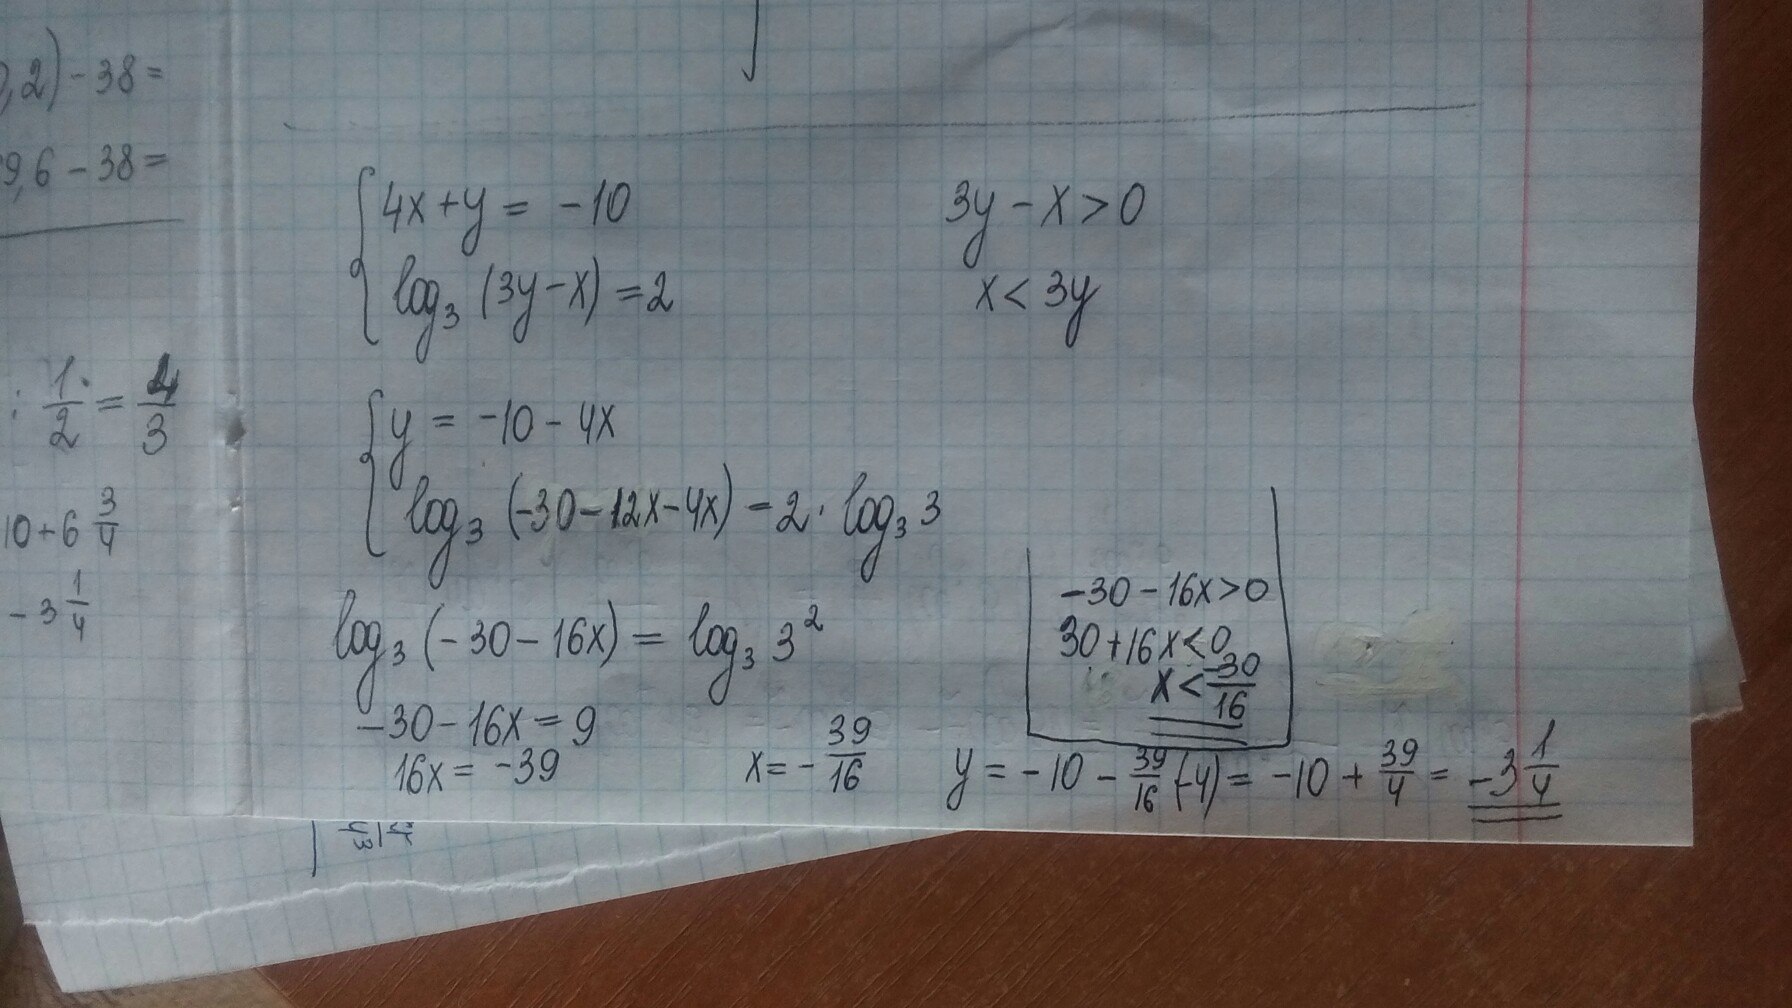 ,2) - 38 =
9,6 - 38 =
: 1/2 = 4/3
10 + 6 3/4
- 3 1/4
{ 4x + y = -10
log₃ (3y - x) = 2
3y - x > 0
x < 3y
{ y = -10 - 4x
log₃ (-30 - 12x - 4x) = 2 · log₃ 3
log₃ (-30 - 16x) = log₃ 3²
-30 - 16x = 9
16x = -39
x = - 39/16
-30 - 16x > 0
30 + 16x < 0
x < -30/16
y = -10 - 39/16 (-4) = -10 + 39/4 = -3 1/4